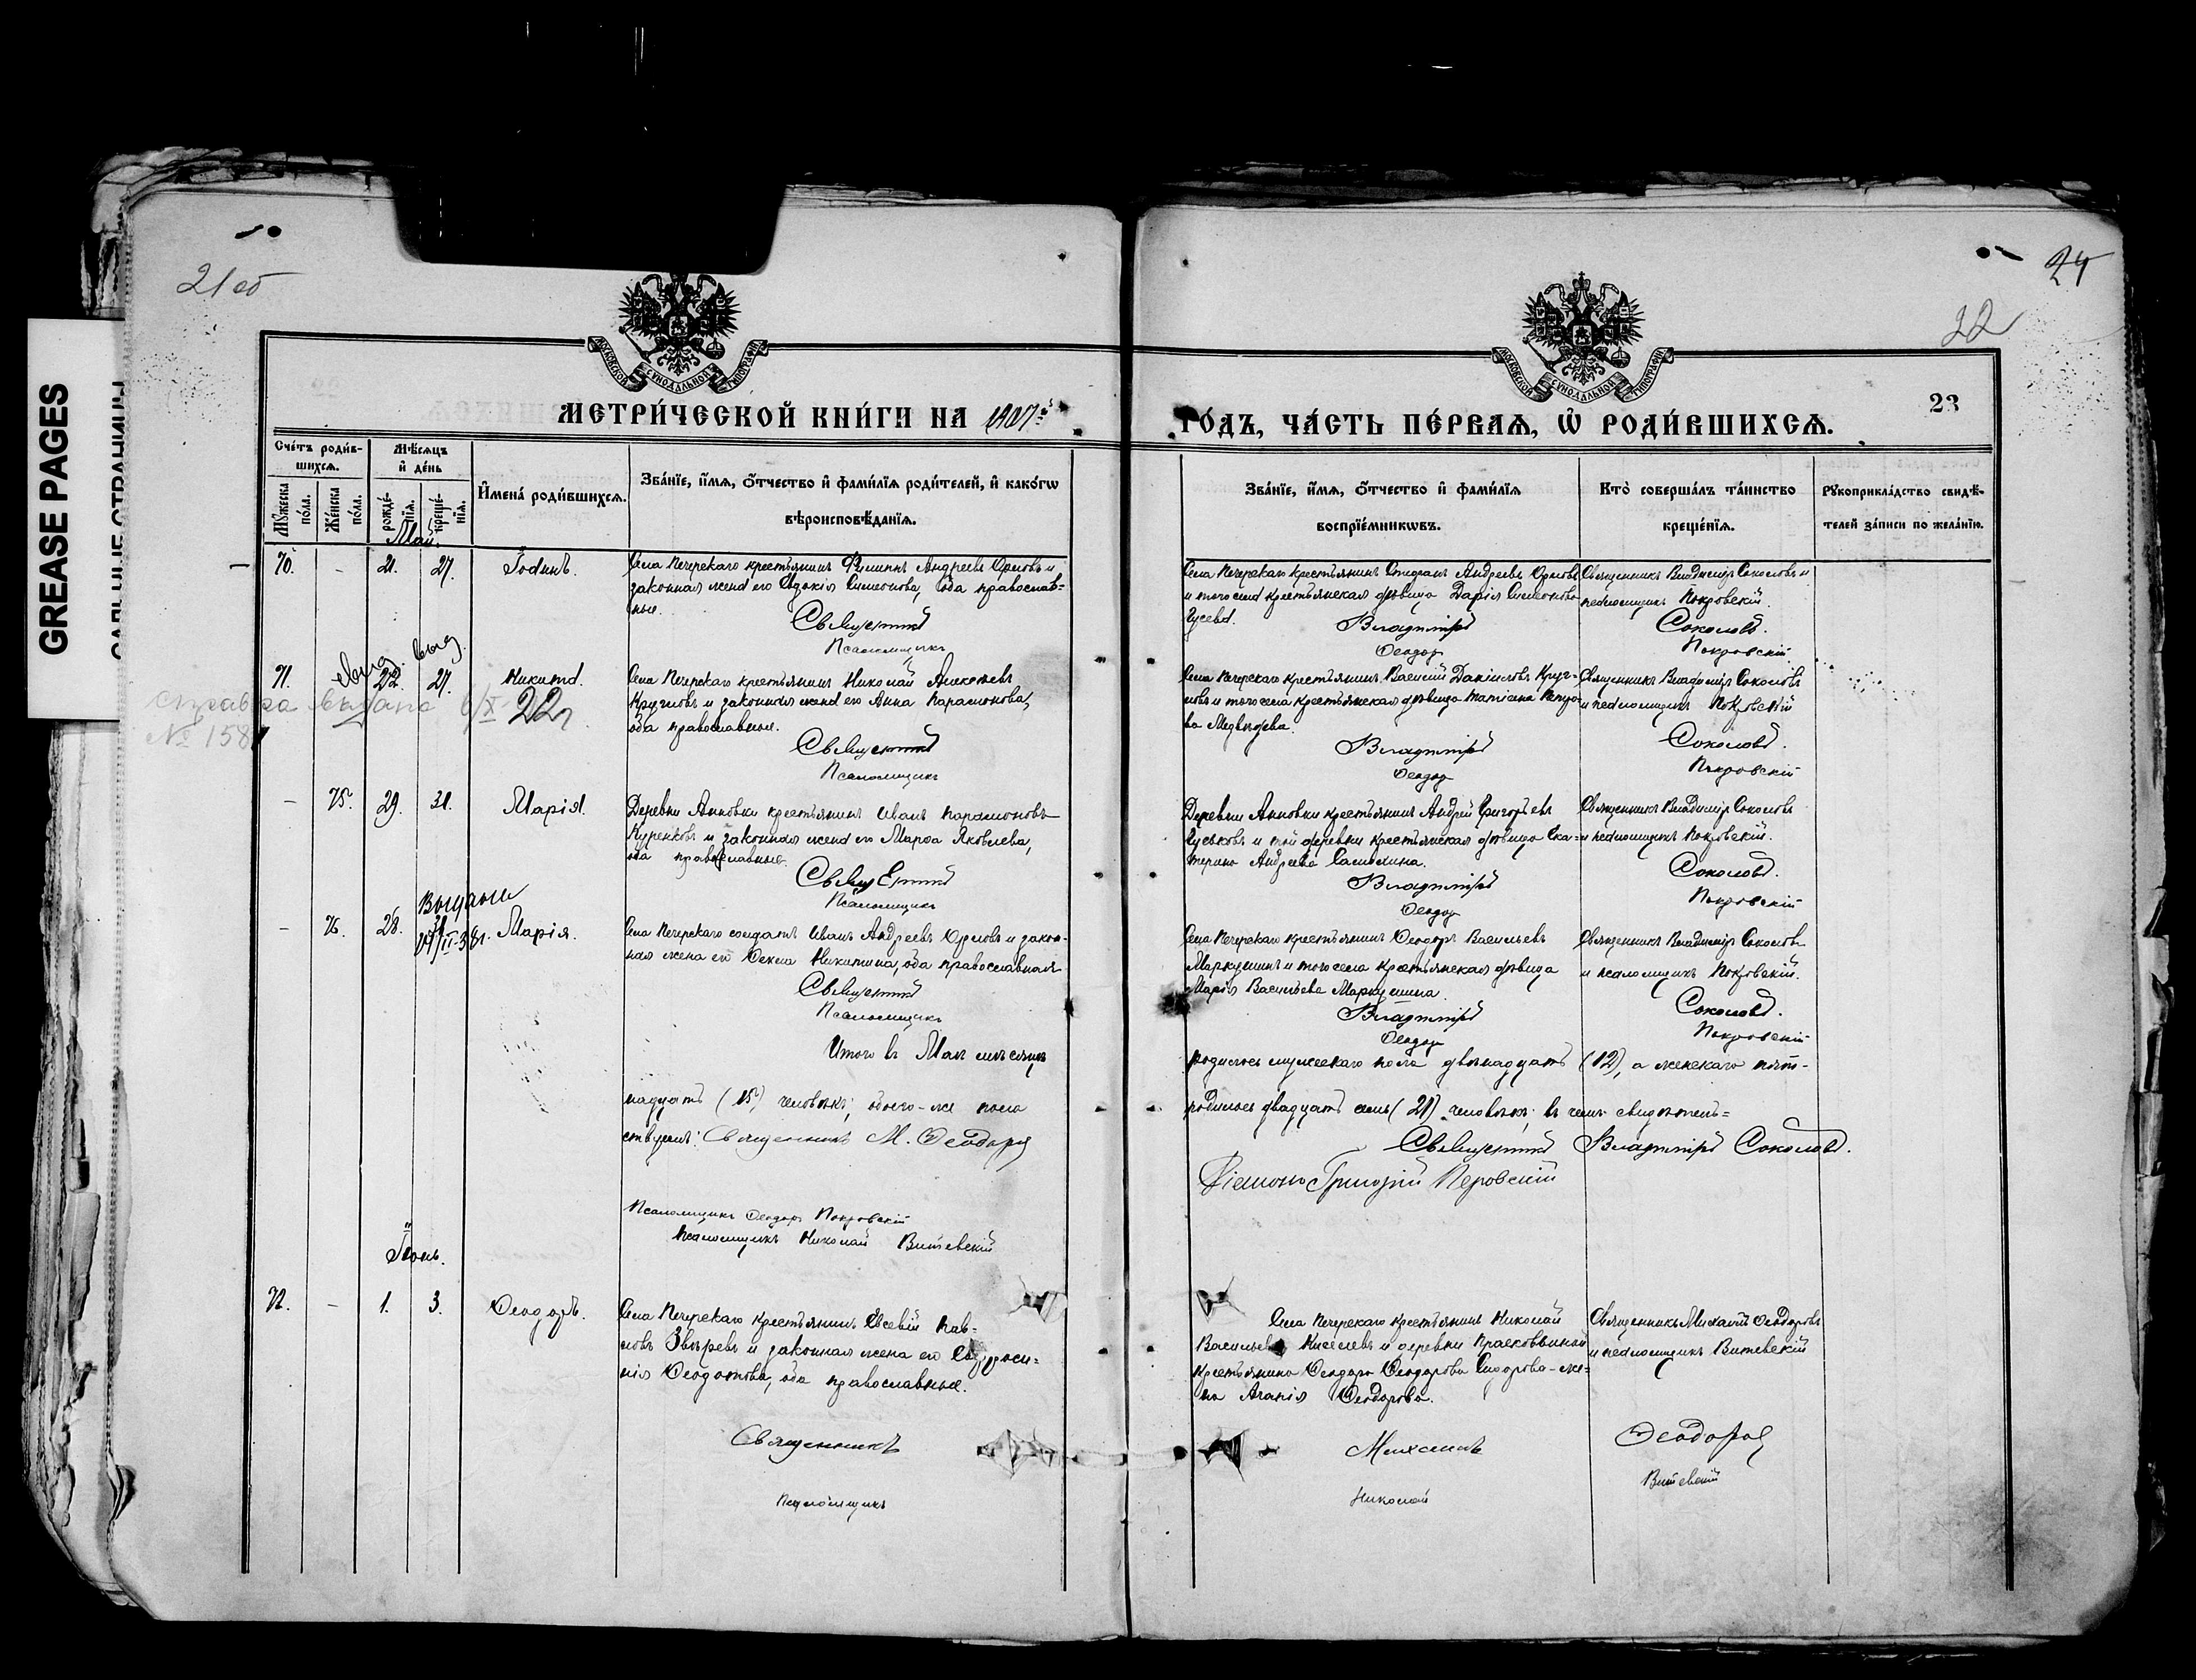 GREASE PAGES
21 об
24
22
23
МОСКОВСКОЙ СУНОДАЛЬНОЙ ТИПОГРАФІИ
МОСКОВСКОЙ СУНОДАЛЬНОЙ ТИПОГРАФІИ
МЕТРИ́ЧЕСКОЙ КНИ́ГИ НА 1907й
ГО́ДЪ, ЧА́СТЬ ПЕ́РВАѦ, Ѡ҆ РОДИ́ВШИХСѦ.
Сче́тъ роди́в-
шихсѧ.
Мѣ́сѧцъ
и҆ де́нь
Мꙋ́жеска
по́ла.
Же́нска
по́ла.
рожде́-
нїѧ.
креще́-
нїѧ.
И҆мена̀ роди́вшихсѧ.
Зва́нїе, и҆́мѧ, ѻ҆́тчество и҆ фами́лїѧ роди́телей, и҆ како́гѡ
вѣроисповѣ́данїѧ.
Зва́нїе, и҆́мѧ, ѻ҆́тчество и҆ фами́лїѧ
воспрїе́мникѡвъ.
Кто̀ соверша́лъ та́инство
креще́нїѧ.
Рꙋкоприкла́дство свидѣ́-
телей за́писи по жела́нїю.
Май.
70. - 21. 27. Іодинъ.
Села Печерскаго крестьянинъ Филиппъ Андреевъ Орловъ и
законная жена его Евдокія Симеонова, оба православ-
ные.
Священникъ
Псаломщикъ
Села Печерскаго крестьянинъ Стефанъ Андреевъ Орловъ
и того села крестьянская дѣвица Дарія Симеонова
Гусева.
Владиміръ
Ѳеодор
Священникъ Владиміръ Соколовъ и
псаломщикъ Покровскій.
Соколовъ.
Покровскій
выд.
71. 22. 27. Никита.
справка выдана 6/X 22г
№ 158
Села Печерскаго крестьянинъ Николай Алексѣевъ
Кругловъ и законная жена его Анна Парамонова,
оба православные.
Священникъ
Псаломщикъ
Села Печерскаго крестьянинъ Василій Даніиловъ Круг-
ловъ и того села крестьянская дѣвица Татіана Петро-
ва Медвѣдева.
Владиміръ
Ѳеодор
Священникъ Владиміръ Соколовъ
и псаломщикъ Покровскій
Соколовъ.
Покровскій
- 75. 29. 31. Марія.
Деревни Анновки крестьянинъ Иванъ Парамоновъ
Куренковъ и законная жена его Марѳа Яковлева,
оба православные.
Священникъ
Псаломщикъ
Деревни Анновки крестьянинъ Андрей Григорьевъ
Гуськовъ и той деревни крестьянская дѣвица Ека-
терина Андреева
Владиміръ
Ѳеодор
Священникъ Владиміръ Соколовъ
и псаломщикъ Покровскій.
Соколовъ.
Покровскій
- 76. 28. 31 Марія.
Села Печерскаго солдатъ Иванъ Андреевъ Орловъ и закон-
ная жена его Ѳекла Никитина, оба православные
Священникъ
Псаломщикъ
Села Печерскаго крестьянинъ Ѳеодоръ Васильевъ
Маркушинъ и того села крестьянская дѣвица
Марія Васильева Маркушина.
Владиміръ
Ѳеодор
Священникъ Владиміръ Соколовъ
и псаломщикъ Покровскій.
Соколовъ.
Покровскій
Итого въ Маѣ мѣсяцѣ
родилось мужескаго пола двѣнадцать (12), а женскаго пят-
надцать (15) человѣкъ; обоего-же пола
родилось двадцать семь (27) человѣкъ; въ чемъ свидѣтель-
ствуемъ: Священникъ М. Ѳеодоровъ
Священникъ Владиміръ Соколовъ.
Діаконъ Григорій Перовскій
Псаломщикъ Ѳеодоръ Покровскій
Псаломщикъ Николай Витевскій
Іюнь.
72. - 1. 3. Ѳеодоръ.
Села Печерскаго крестьянинъ Евсевій Пав-
ловъ Звѣревъ и законная жена его Евфроси-
нія Ѳеодотова, оба православные.
Священникъ
Псаломщикъ
Села Печерскаго крестьянинъ Николай
Васильевъ Киселевъ и деревни Прасковьиной
крестьянина Ѳеодора Ѳеодорова Сидорова же-
на Агапія Ѳеодорова.
Михаилъ
Николай
Священникъ Михаилъ Ѳеодоровъ
и псаломщикъ Витевскій
Ѳеодоровъ
Витевскій